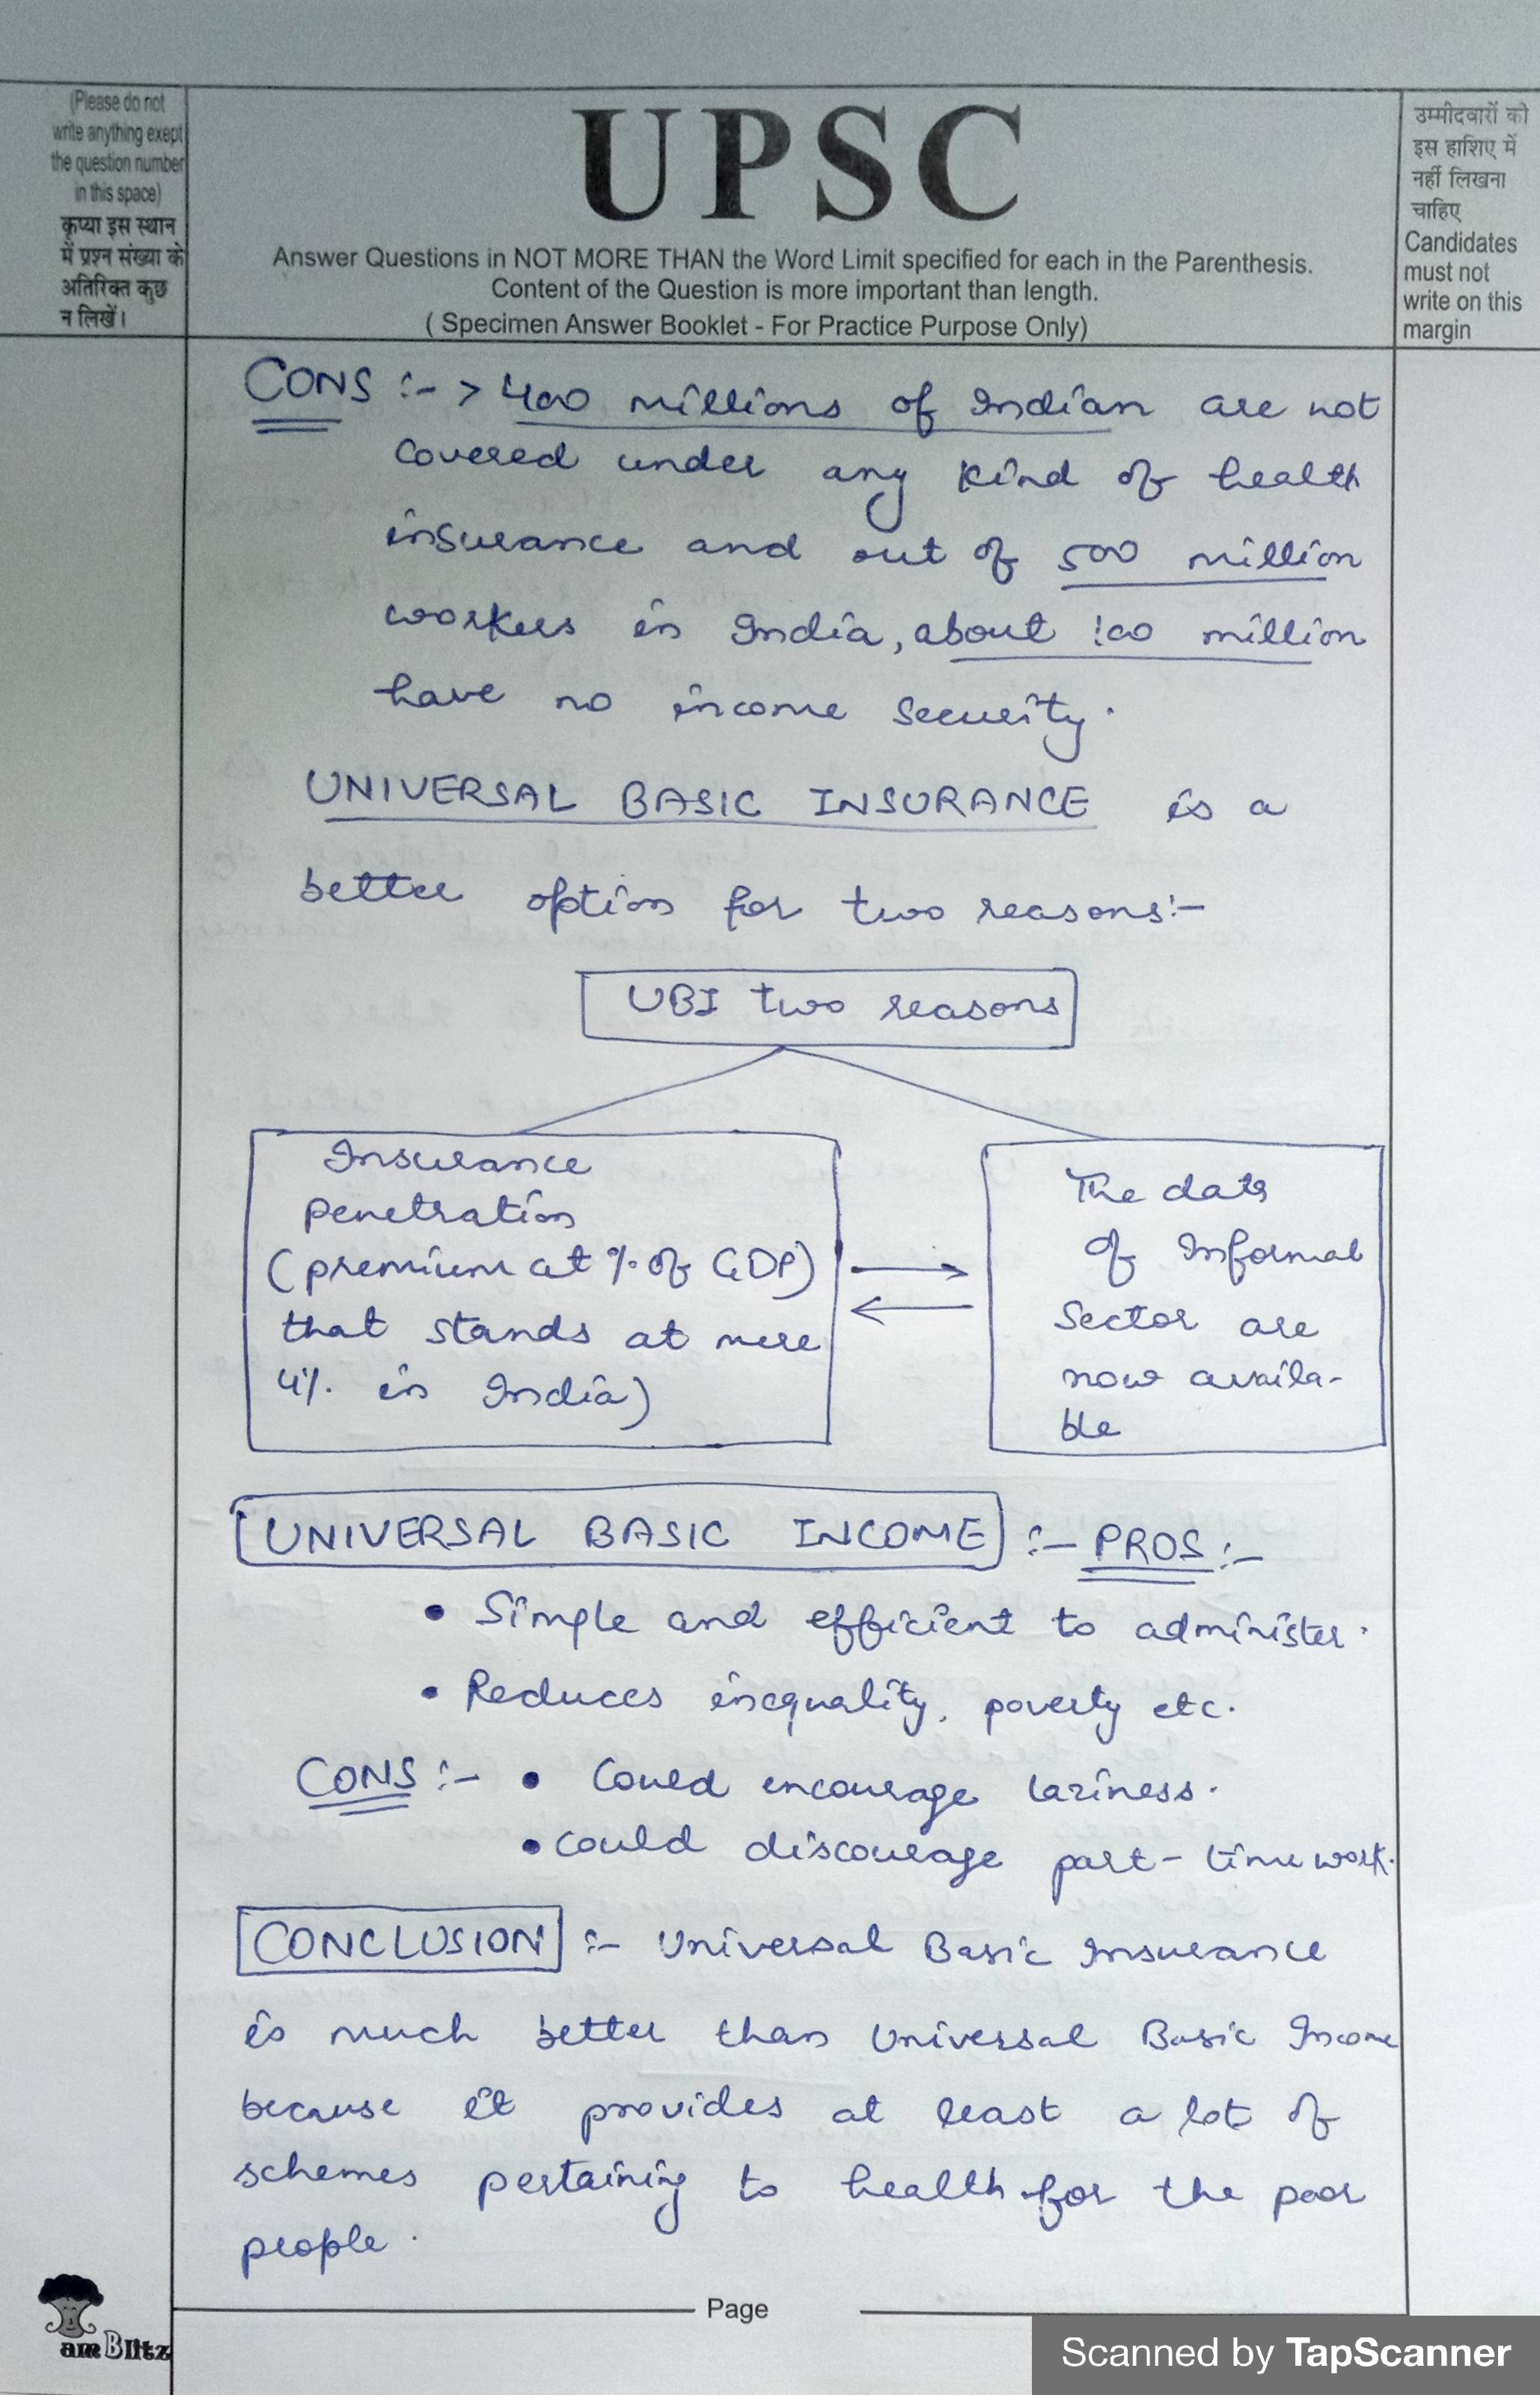 (Please do not
write anything exept
the question number
in this space)
कृप्या इस स्थान
में प्रश्न संख्या के
अतिरिक्त कुछ
न लिखें।
UPSC
Answer Questions in NOT MORE THAN the Word Limit specified for each in the Parenthesis.
Content of the Question is more important than length.
( Specimen Answer Booklet - For Practice Purpose Only)
उम्मीदवारों को
इस हाशिए में
नहीं लिखना
चाहिए
Candidates
must not
write on this
margin
CONS :- > 400 millions of Indian are not
covered under any kind of health
insurance and out of 500 million
workers in India, about 100 million
have no income security.
UNIVERSAL BASIC INSURANCE is a
better option for two reasons:-
UBI two reasons
Insurance
penetration
(premium at % of GDP)
that stands at mere
4% in India)
The data
of Informal
Sector are
now availa-
ble
UNIVERSAL BASIC INCOME :- PROS :-
• Simple and efficient to administer.
• Reduces inequality, poverty etc.
CONS :- • Could encourage laziness.
• Could discourage part-time work.
CONCLUSION :- Universal Basic Insurance
is much better than Universal Basic Income
because it provides at least a lot of
schemes pertaining to health for the poor
people.
Page
am Blitz
Scanned by TapScanner